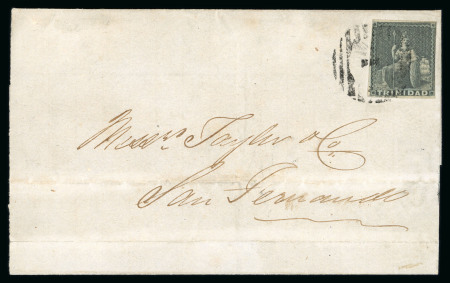 TRINIDAD
Messrs. Taylor & Co.
San Fernando